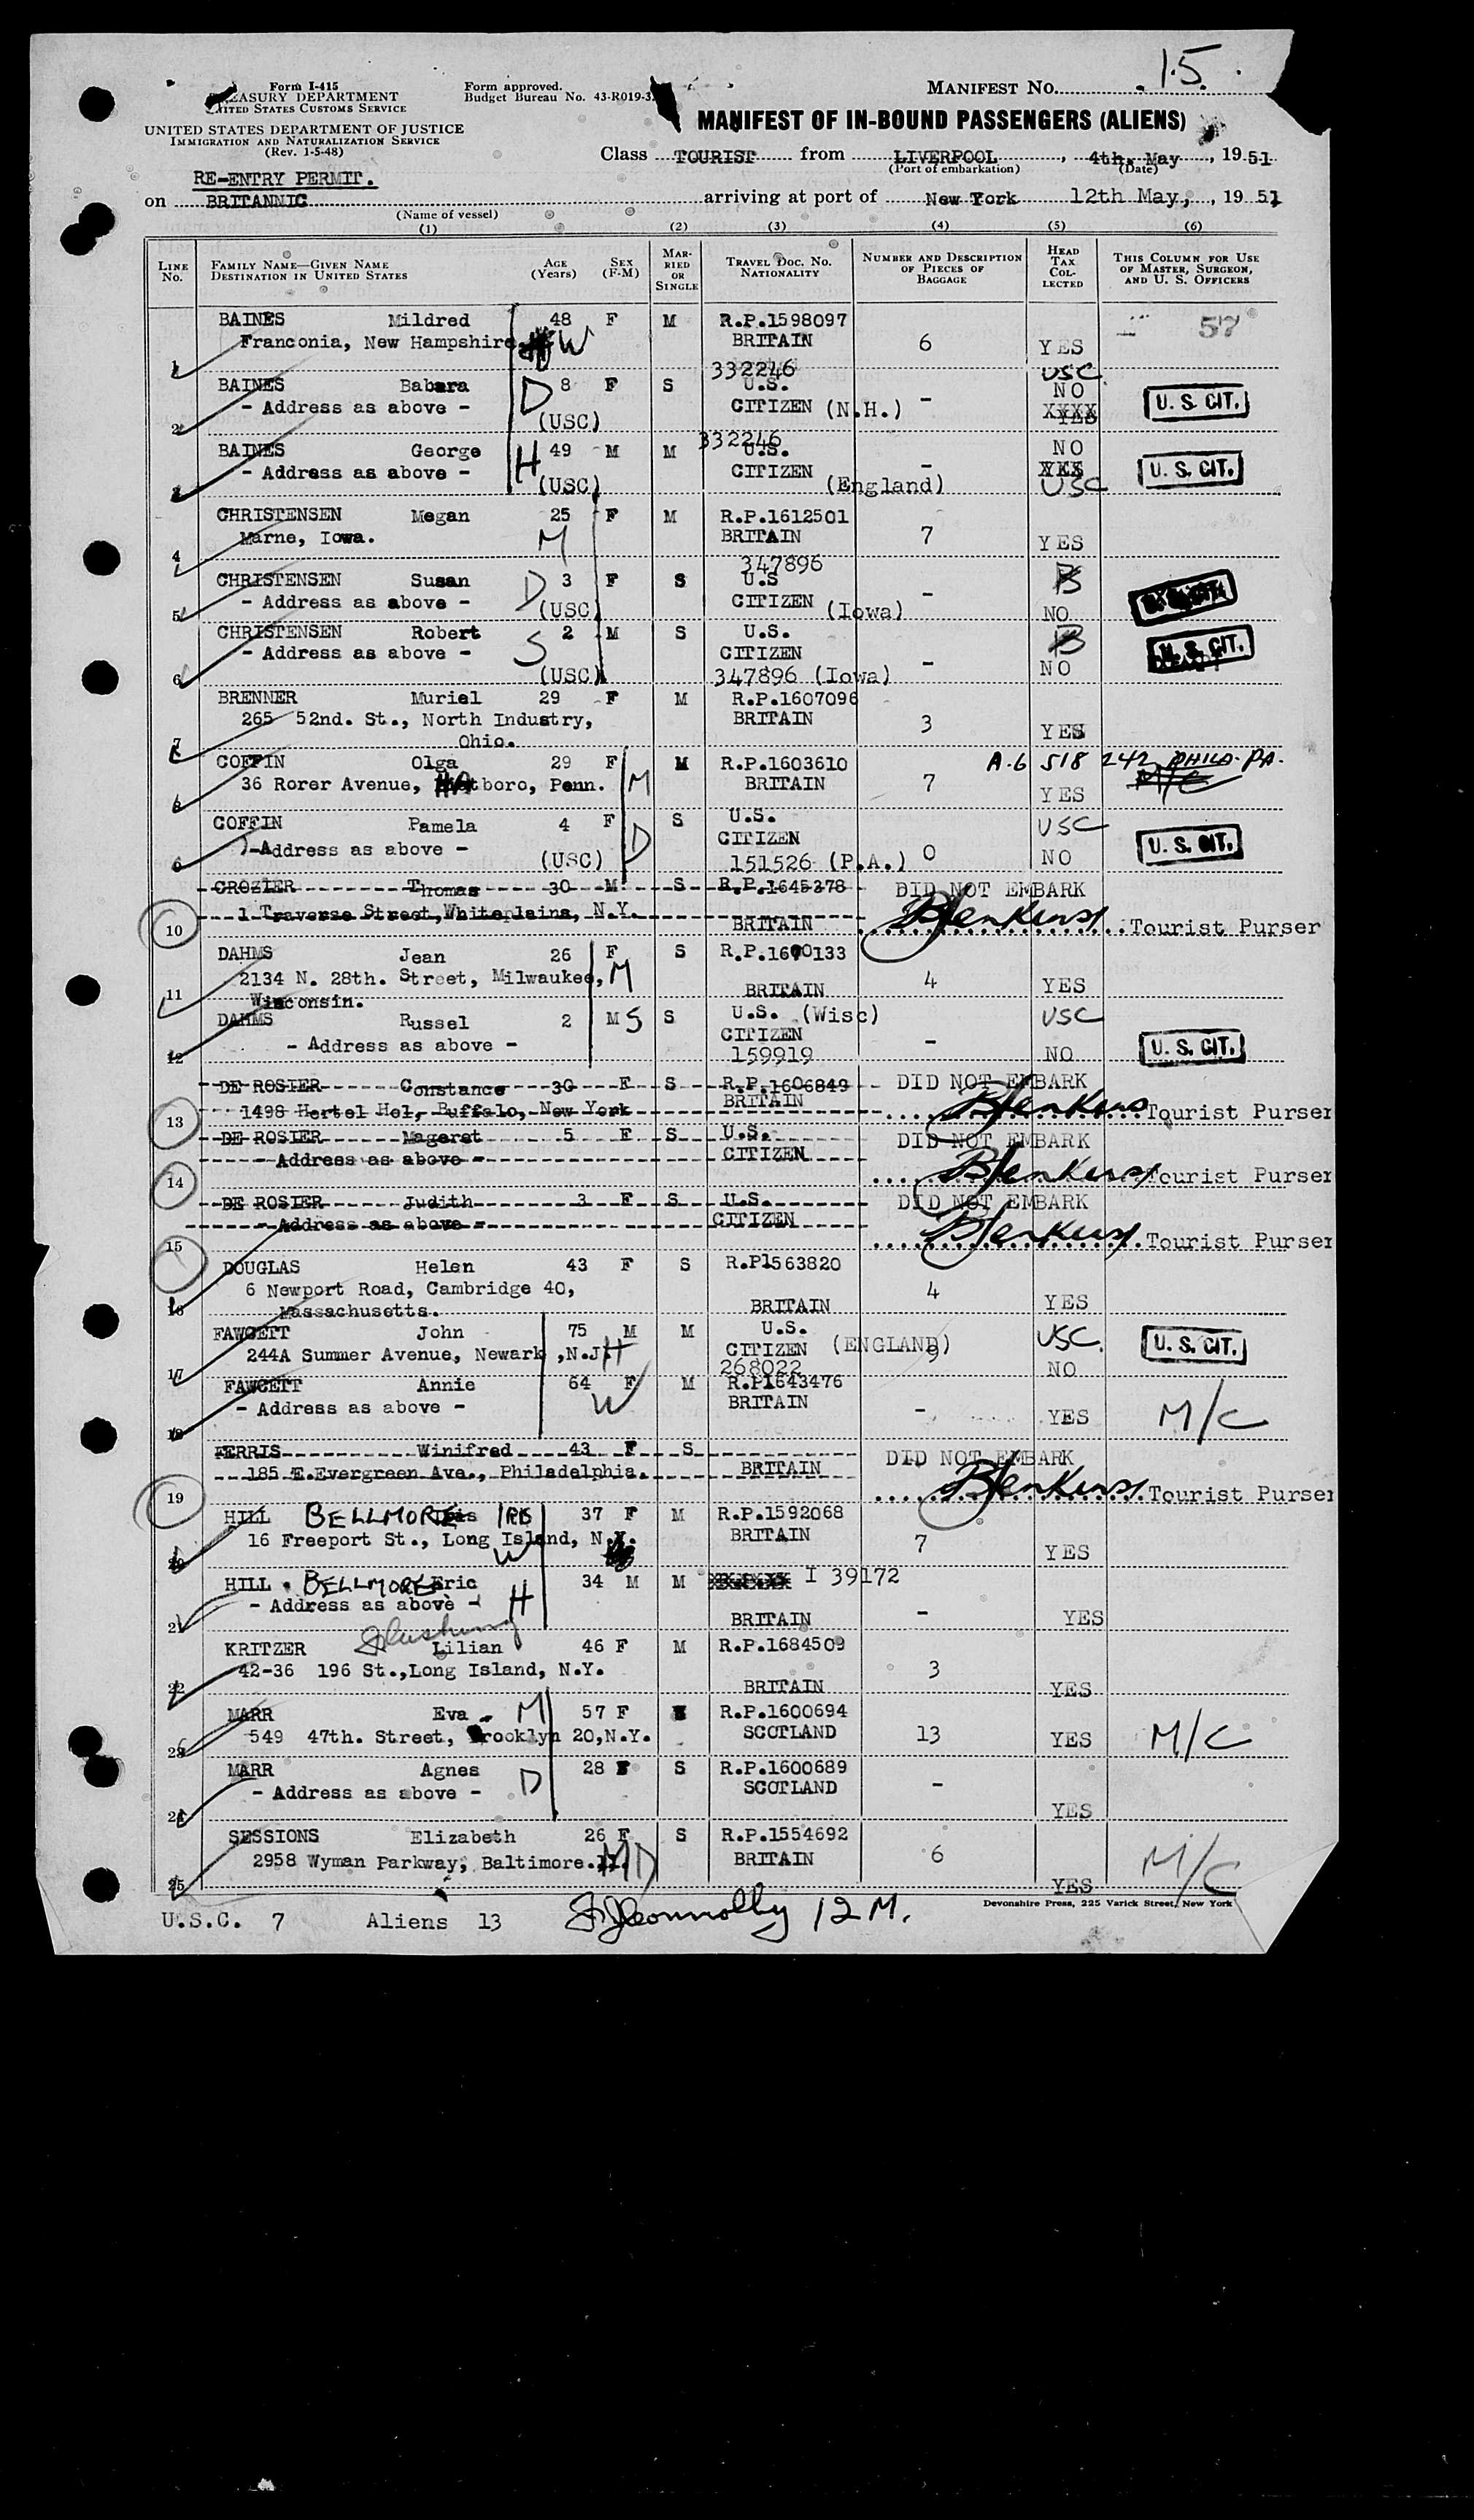 1.5.
Form I-415
TREASURY DEPARTMENT
UNITED STATES CUSTOMS SERVICE
Form approved.
Budget Bureau No. 43-R019-3.
MANIFEST No.
UNITED STATES DEPARTMENT OF JUSTICE
IMMIGRATION AND NATURALIZATION SERVICE
(Rev. 1-5-48)
MANIFEST OF IN-BOUND PASSENGERS (ALIENS)
Class TOURIST from LIVERPOOL, 4th. May, 1951
(Port of embarkation) (Date)
RE-ENTRY PERMIT.
on BRITANNIC arriving at port of New York 12th May, 1951
(Name of vessel)
(1) (2) (3) (4) (5) (6)
LINE No. FAMILY NAME—GIVEN NAME DESTINATION IN UNITED STATES AGE (Years) SEX (F-M) MARRIED OR SINGLE TRAVEL DOC. NO. NATIONALITY NUMBER AND DESCRIPTION OF PIECES OF BAGGAGE HEAD TAX COLLECTED THIS COLUMN FOR USE OF MASTER, SURGEON, AND U. S. OFFICERS
BAINES Mildred 48 F M R.P.1598097 57
Franconia, New Hampshire. W BRITAIN 6 YES
1 332246 USC
BAINES Babara D 8 F S U.S. NO
- Address as above - CITIZEN (N.H.) - XXXX YES U. S. CIT.
2 (USC)
332246
BAINES George H 49 M M U.S. NO
- Address as above - CITIZEN - YES U. S. CIT.
3 (USC) (England) USC
CHRISTENSEN Megan 25 F M R.P.1612501
Marne, Iowa. M BRITAIN 7 YES
4 347896
CHRISTENSEN Susan D 3 F S U.S
- Address as above - CITIZEN (Iowa) -
5 (USC) NO
CHRISTENSEN Robert 2 M S U.S.
- Address as above - S CITIZEN - U. S. CIT.
6 (USC) 347896 (Iowa) NO
BRENNER Muriel 29 F M R.P.1607096
265 52nd. St., North Industry, BRITAIN 3 YES
7 Ohio.
COFFIN Olga 29 F M R.P.1603610 A-6 518 242 PHILA. PA.
36 Rorer Avenue, Hatboro, Penn. M BRITAIN 7 YES M/C
8
COFFIN Pamela 4 F S U.S. USC
- Address as above - D CITIZEN 0 NO U. S. CIT.
(USC) 151526 (P.A.)
CROZIER Thomas 30 M S R.P.1645378 DID NOT EMBARK
1 Traverse Street, Whiteplains, N.Y. BRITAIN Tourist Purser
10
DAHMS Jean 26 F S R.P.1600133
2134 N. 28th. Street, Milwaukee, M BRITAIN 4 YES
11 Wisconsin.
DAHMS Russel 2 M S S U.S. (Wisc) USC
- Address as above - CITIZEN - NO U. S. CIT.
12 159919
DE ROSIER Constance 30 F S R.P.1606849 DID NOT EMBARK
1498 Hertel Hol, Buffalo, New York BRITAIN Tourist Purser
13
DE ROSIER Mageret 5 F S U.S. DID NOT EMBARK
- Address as above - CITIZEN Tourist Purser
14
DE ROSIER Judith 3 F S U.S. DID NOT EMBARK
- Address as above - CITIZEN Tourist Purser
15
DOUGLAS Helen 43 F S R.P1563820
6 Newport Road, Cambridge 40, BRITAIN 4 YES
16 Massachusetts.
FAWCETT John 75 M M U.S. USC.
244A Summer Avenue, Newark, N.J. H CITIZEN (ENGLAND) 9 NO U. S. CIT.
17 268022
FAWCETT Annie 64 F M R.P1643476
- Address as above - W BRITAIN - YES M/C
18
FERRIS Winifred 43 F S DID NOT EMBARK
185 E.Evergreen Ave., Philadelphia. BRITAIN Tourist Purser
19
HILL BELLMORE IRIS 37 F M R.P.1592068
16 Freeport St., Long Island, N.Y. W BRITAIN 7 YES
20
HILL BELLMORE Eric 34 M M I 39172
- Address as above - H BRITAIN - YES
21 Flushing
KRITZER Lilian 46 F M R.P.1684509
42-36 196 St.,Long Island, N.Y. BRITAIN 3 YES
22
MARR Eva M 57 F R.P.1600694
549 47th. Street, Brooklyn 20,N.Y. SCOTLAND 13 YES M/C
23
MARR Agnes D 28 F S R.P.1600689
- Address as above - SCOTLAND - YES
24
SESSIONS Elizabeth 26 F S R.P.1554692
2958 Wyman Parkway, Baltimore. MD BRITAIN 6 YES M/C
25
Devonshire Press, 225 Varick Street, New York
U.S.C. 7 Aliens 13 Connolly 12 M.